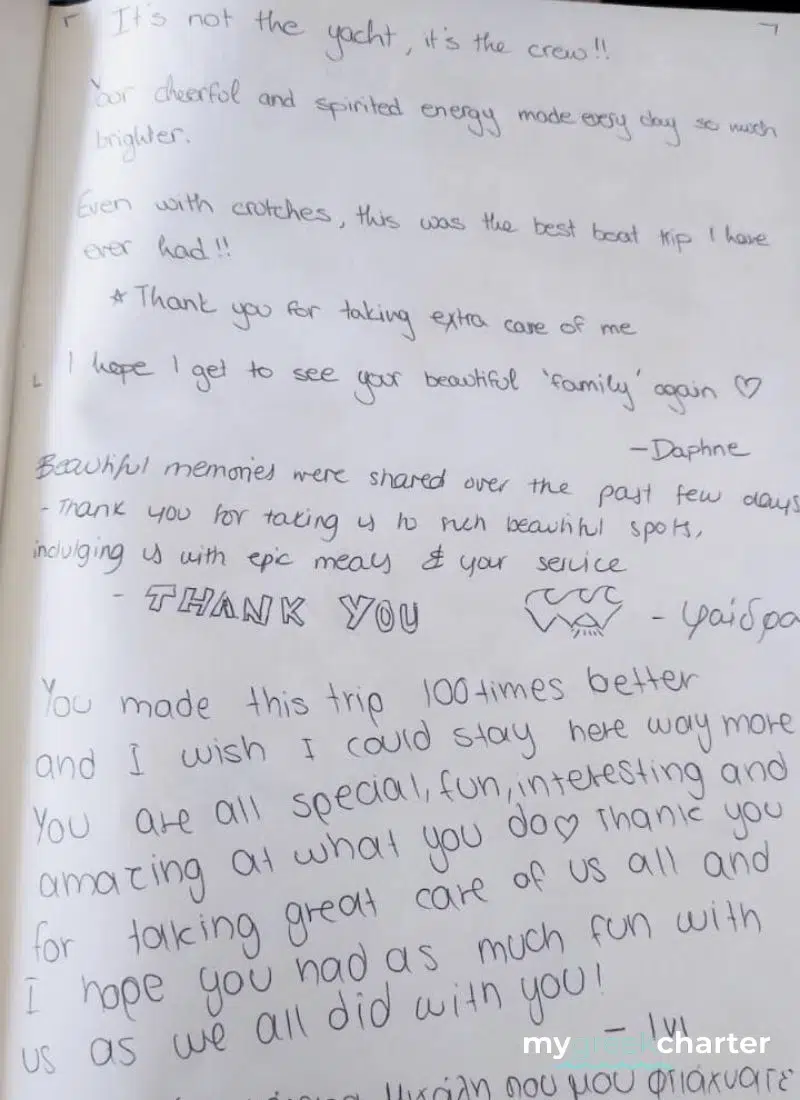 It's not the yacht, it's the crew!!
Your cheerful and spirited energy made every day so much
brighter.
Even with crutches, this was the best boat trip I have
ever had!!
* Thank you for taking extra care of me
I hope I get to see your beautiful 'family' again ♡
- Daphne
Beautiful memories were shared over the past few days
- Thank you for taking us to such beautiful spots,
indulging us with epic meals & your service
- THANK YOU
- Φαίδρα
You made this trip 100 times better
and I wish I could stay here way more
You are all special, fun, interesting and
amazing at what you do ♡ Thank you
for taking great care of us all and
I hope you had as much fun with
us as we all did with you!
- Ivi
mygreekcharter
Μιχάλη που μου φτιάχνατε